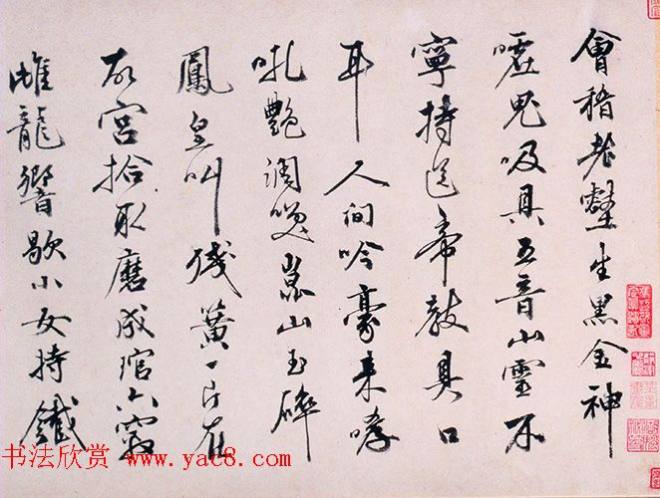 會稽老壑生黑金神
嘘鬼吸具五音山靈不
寧持送帝教具口
耳人间吟豪来哮
吼艷調崑山玉碎
鳳皇叫残簧一片在
故宫拾取磨成琯六竅
雌龍響歇小女持鐵
书法欣赏 www.yac8.com